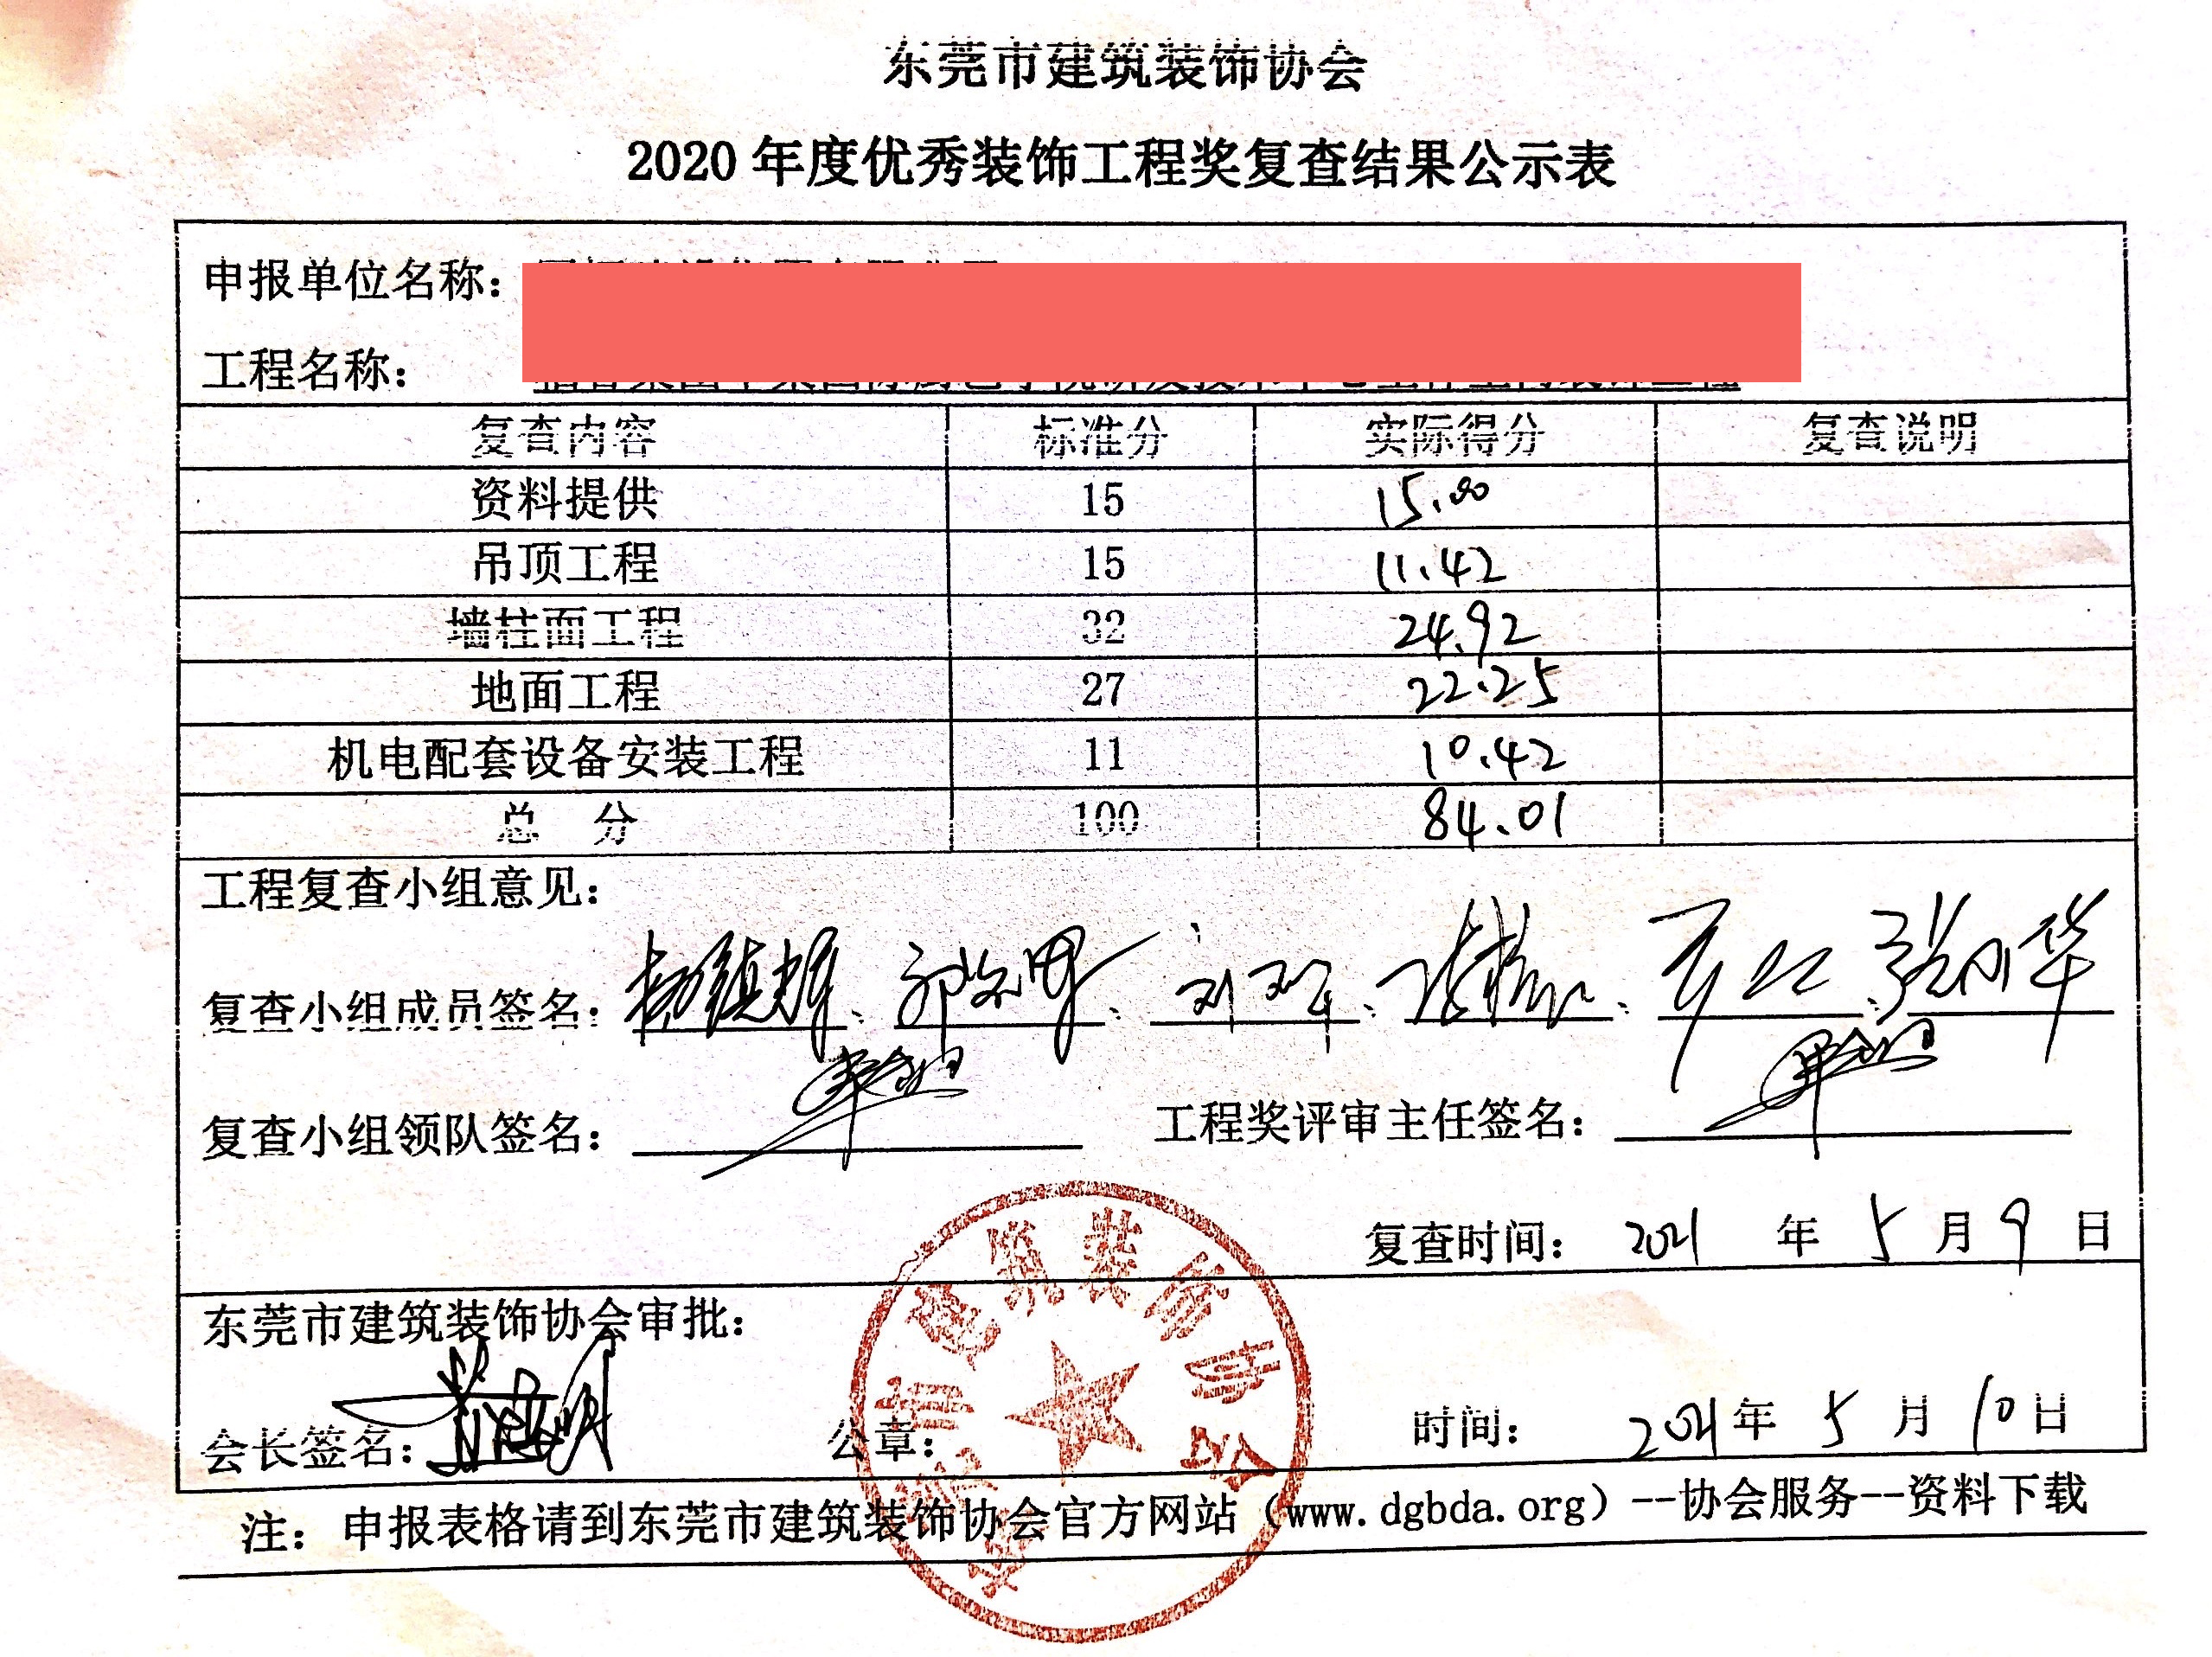 东莞市建筑装饰协会
2020 年度优秀装饰工程奖复查结果公示表
申报单位名称：
工程名称：
复查内容 标准分 实际得分 复查说明
资料提供 15 15.00
吊顶工程 15 11.42
墙柱面工程 32 24.92
地面工程 27 22.25
机电配套设备安装工程 11 10.42
总 分 100 84.01
工程复查小组意见：
复查小组成员签名：
复查小组领队签名： 工程奖评审主任签名：
复查时间： 2021 年 5 月 9 日
东莞市建筑装饰协会审批：
会长签名： 公章： 时间： 2021 年 5 月 10 日
注：申报表格请到东莞市建筑装饰协会官方网站（www.dgbda.org）--协会服务--资料下载